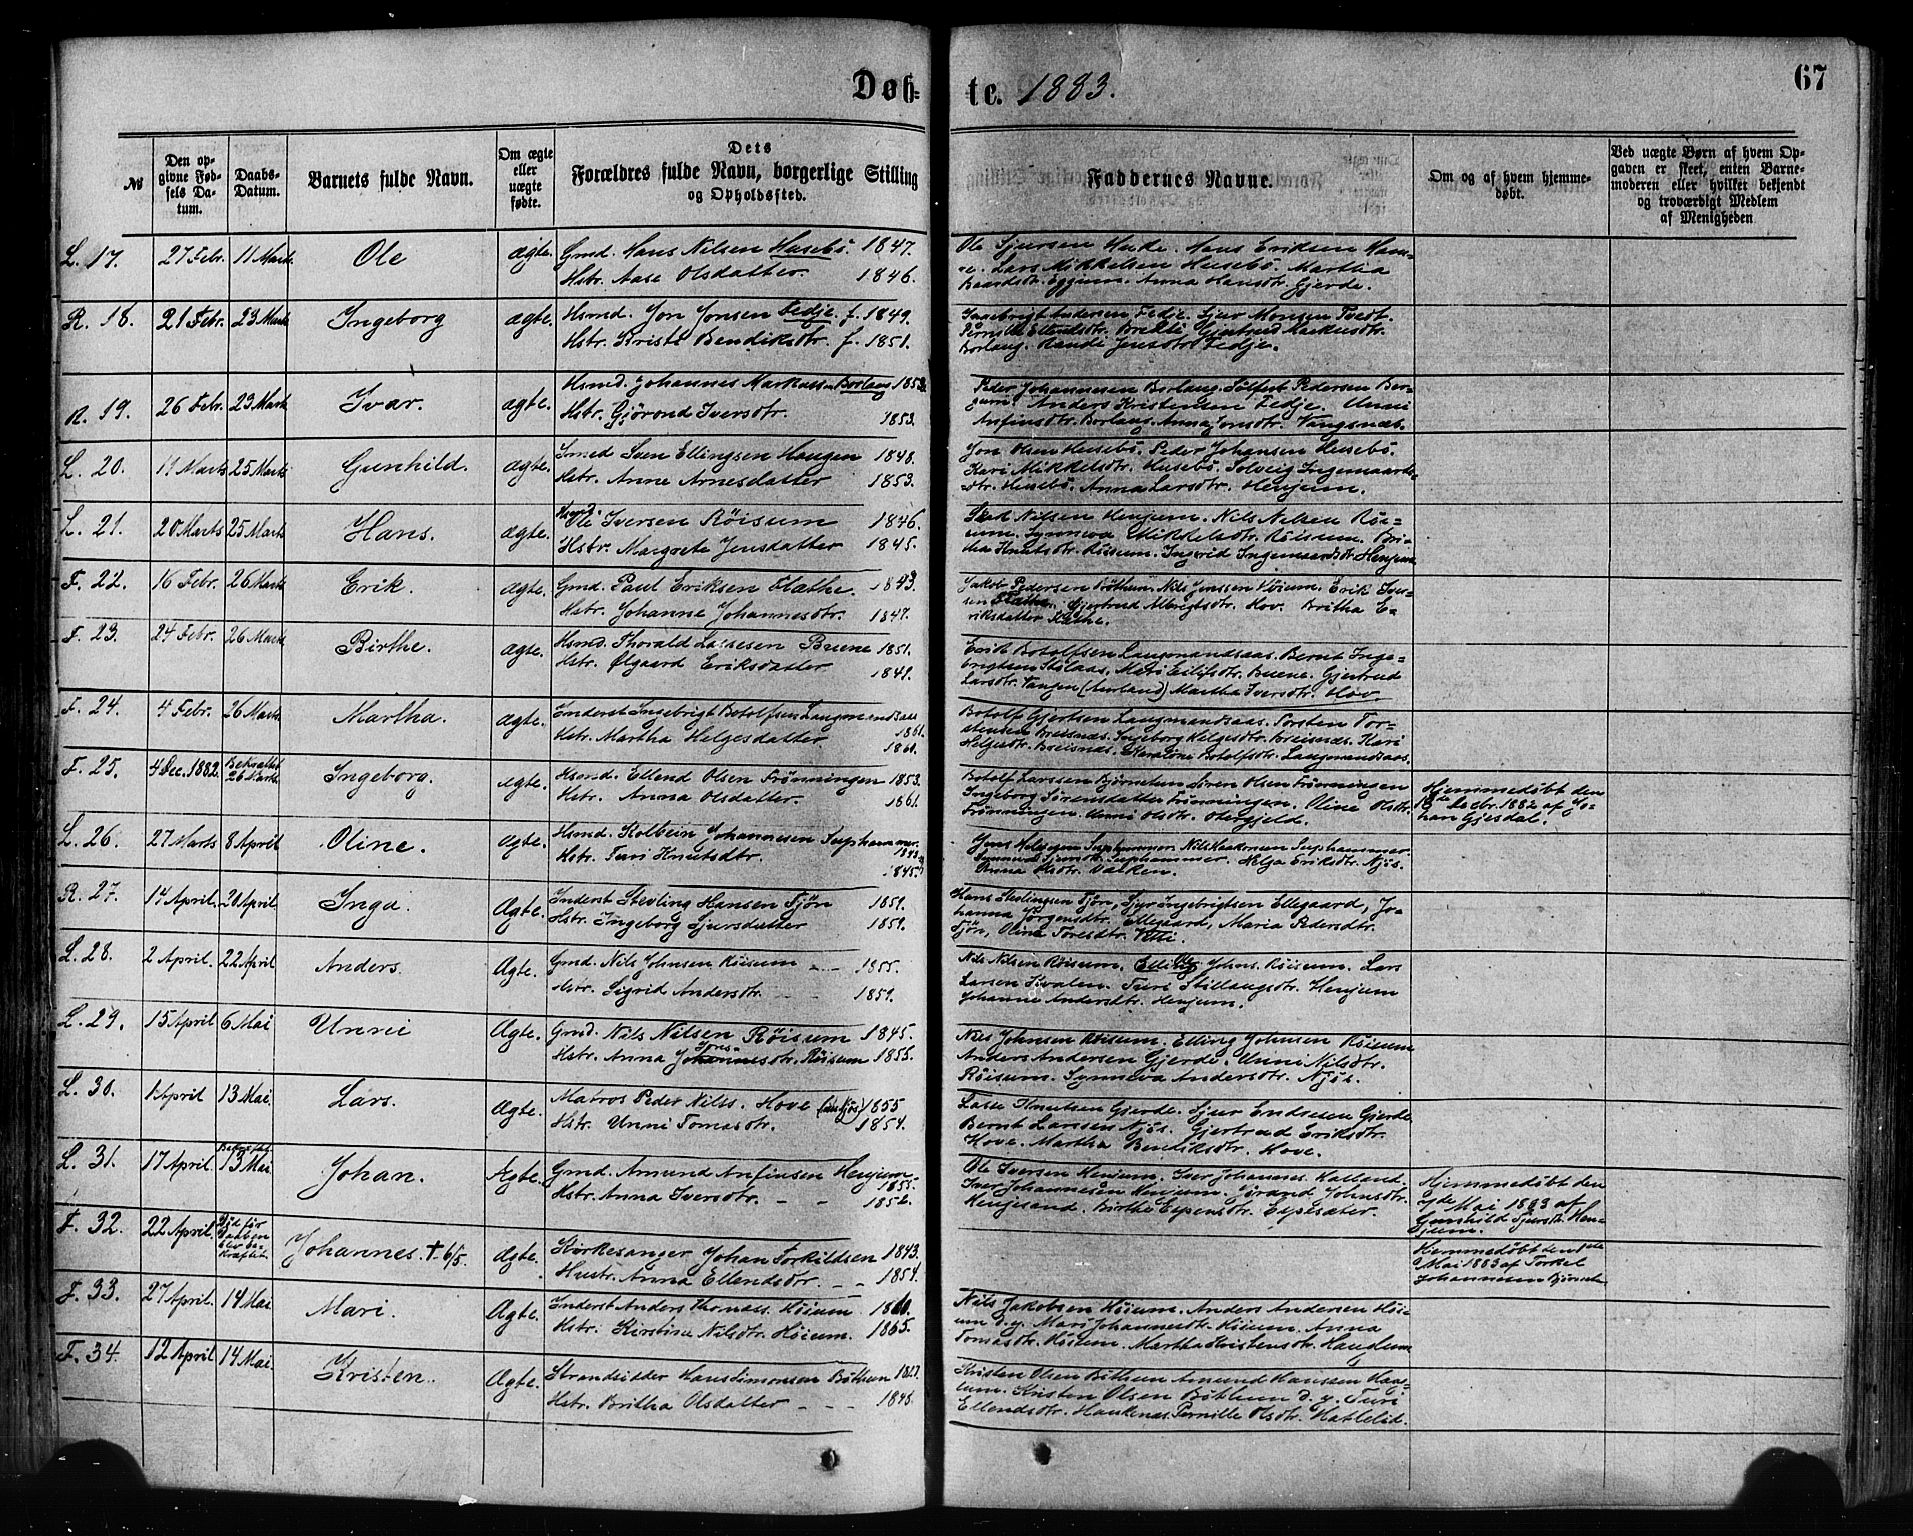 Døb-
te. 1883.
67
№
Den op-
givne Fød-
sels Da-
tum.
Daabs-
Datum.
Barnets fulde Navn.
Om ægte
eller
uægte
fødte.
Dets
Forældres fulde Navn, borgerlige Stilling
og Opholdssted.
Faddernes Navne.
Om og af hvem hjemme-
døbt.
Ved uægte Børn af hvem Op-
gaven er skeet, enten Barne-
moderen eller hvilket bekjendt
og troværdigt Medlem
af Menigheden
L. 17. 27 Febr. 11 Marts Ole ægte. Gmd. Hans Nilsen Husebø 1847.
Hstr. Aase Olsdatter. 1846.
Ole Sjursen Hade. Hans Eriksen Ham-
re. Lars Mikkelsen Husebø. Martha
Baardsdtr. Eggjum. Anna Hansdtr. Gjerde.
R. 18. 21 Febr. 23 Marts Ingeborg ægte. Hsmd. Jon Jonsen Fedje f. 1849.
Hstr. Kristi Bendiksdtr. f. 1851.
Ingebrigt Andersen Fedje. Sjur Monsen Tvedt.
Pernille Ellendsdtr. Brekke Gjertrud Markusdtr.
Borlaug. Randi Jensdtr. Fedje.
R. 19. 26 Febr. 23 Marts Ivar. ægte. Hsmd. Johannes Markussen Borlaug 1853
Hstr. Gjørond Iversdtr. 1853.
Peder Johannesen Borlaug. Sølfest Pedersen Ber-
gum. Anders Kristensen Fedje. Unni
Anfinsdtr. Borlaug. Anna Jonsdtr. Vangsnæs.
L. 20. 11 Marts 25 Marts Gunhild. ægte. Smed Sven Ellingsen Haugen 1848.
Hstr. Anne Arnesdatter 1853.
Jon Olsen Husebø. Peder Johansen Husebø.
Kari Mikkelsdtr. Husebø. Solveig Ingemaards-
dtr. Husebø. Anna Larsdtr. Henjum.
L. 21. 20 Marts 25 Marts Hans. ægte. Hsmd. Ole Iversen Røisum 1846.
Hstr. Margrete Jensdatter 1845.
Nilsen Henjum. Nils Nilsen Røi-
sum. Synneva Mikkelsdtr. Røisum. Bri-
tha Knutsdtr. Røisum. Ingrid Ingemaardsdtr. Henjum
F. 22. 16 Febr. 26 Marts Erik. ægte. Gmd. Paul Eriksen Flæthe. 1843.
Hstr. Johanne Johannesdtr. 1847.
Jakob Pedersen Bøthun. Nils Jonssen Høium. Erik Iver-
sen Flæthe. Gjertrud Albrigtsdtr. Hov. Britha E-
riksdatter Flæthe.
F. 23. 24 Febr. 26 Marts Birthe. ægte. Hsmd. Thorald Lassesen Bruene 1851.
Hstr. Ølgaard Eriksdatter 1849.
Erik Botolfsen Laugmandsaas. Bernt Inge-
brigtsen Stølaas. Mari Eilifsdtr. Buene. Gjertrud
Larsdtr. Vangen (Aurland) Martha Iversdtr. Hov.
F. 24. 4 Febr. 26 Marts Martha. ægte. Inderst Ingebrigt Botolfsen Laugmandsaas 1861.
Hstr. Martha Helgesdatter 1860.
Botolf Gjertsen Laugmandsaas. Torsten Tor-
stensen Breisnæs. Ingeborg Helgesdtr. Breisnæs. Kari
Helgesdtr. Breisnæs. Karoline Botolfsdtr. Laugmandsaas.
F. 25. 4 Dec. 1882. Bekræftet 26 Marts Ingeborg. ægte. Hsmd. Ellend Olsen Frønningen 1853.
Hstr. Anna Olsdatter. 1861.
Botolf Larssen Bjørnetun Søren Olsen Frønningen
Ingeborg Sørensdatter Frønningen. Oline Olsdtr.
Frønningen. Unni Olsdtr. Overgjeld.
Hjemmedøbt den
de Decbr. 1882 af Jo-
han Gjesdal.
L. 26. 27 Marts 8 April Oline. ægte. Hsmd. Kolbein Johannesen Suphammer.
Hstr. Turi Knutsdtr. 1845.
Jens Helgesen Suphammer. Nils Haakonsen Suphammer.
Synneva Sjursdtr. Suphammer. Helga Eriksdtr. Njøs.
Anna Olsdtr. Valken.
R. 27. 14 April. 20 April. Inga. Ægte. Inderst Stedling Hansen Fjøn 1859.
Hstr. Ingeborg Sjursdatter 1859.
Hans Stedlingsen Fjøn, Sjur Ingebrigtsen Ellegaard, Jo-
hanna Jørgensdtr. Ellegaard, Maria Pedersdtr.
Fjøn. Oline Toresdtr. Vetti.
L. 28. 2 April. 22 April Anders. Ægte. Gmd. Nils Johnsen Røisum 1855.
Hstr. Sigrid Andersdtr. 1859.
Nils Nilsen Røisum. Elling Johns. Røisum. Lars
Larsen Kvalen. Turi Stillaugsdtr. Henjum
Johanne Andersdtr. Henjum.
L. 29. 15 April 6 Mai Unni Ægte. Gmd. Nils Nilsen Røisum 1845.
Hstr. Anna Jons- dtr. Røisum 1855.
Nils Johnsen Røisum. Elling Johnsen Røisum
Anders Andersen Gjerde. Unni Nilsdtr.
Røisum. Synneva Andersdtr. Njøs.
L. 30. 1 April 13 Mai. Lars. Ægte. Matros Peder Nilss. Hove 1855
Hstr. Unni Tomasdtr. 1854.
Lasse Knutsen Gjerde. Sjur Endresen Gjerde
Bernt Larssen Njøs. Gjertrud Eriksdtr.
Hove. Martha Bendiksdtr. Hove.
L. 31. 17 April. Bekræftet 13 Mai Johan. Ægte. Gmd. Amund Anfinsen Henjum 1855.
Hstr. Anna Iversdtr.
Ole Iversen Henjum. Iver Johannes. Kalland.
Iver Johannesen Henjum. Jørand Johnsdtr.
Hengesand. Birthe Espensdtr. Espesæter.
Hjemmedøbt den
de Mai 1883 af
Gunhild Sjursdtr. Hen-
jum.
F. 32. 22 April Død før Daaben blev be- kræftet Johannes. † 6/5. Ægte. Kirkesanger Johan Torkildsen 1843.
Hustr. Anna Ellendsdtr. 1854.
Hjemmedøbt den de
Mai 1883 af Torkel
Johannesen Bjørnetun
F. 33. 27 April. 14 Mai Mari. Ægte. Inderst Anders Thomass. Høium 1860.
Hstr. Kirstine Nilsdtr. Høium. 1865.
Nils Jakobsen Høium. Anders Andersen Høi-
um d. y. Mari Johannesdtr. Høium. Anna
Tomasdtr. Høium. Martha Kristensdtr. Hauglum
F. 34. 12 April 14 Mai Kristen. Ægte. Strandsidder Hans Simonsen Bøthun
Hstr. Britha Olsdatter 1848.
Kristen Olsen Bøthun Amund Hanssen Haug-
lum. Kristen Olsen Bøthun d. y. Turi
Ellendsdtr. Haukenæs. Pernille Olsdtr. Hatlelid.